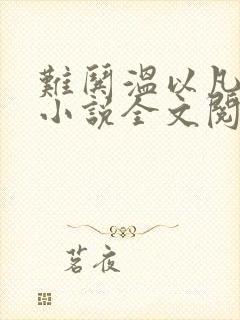 難鬨溫以凡
小說全文閱
茗夜